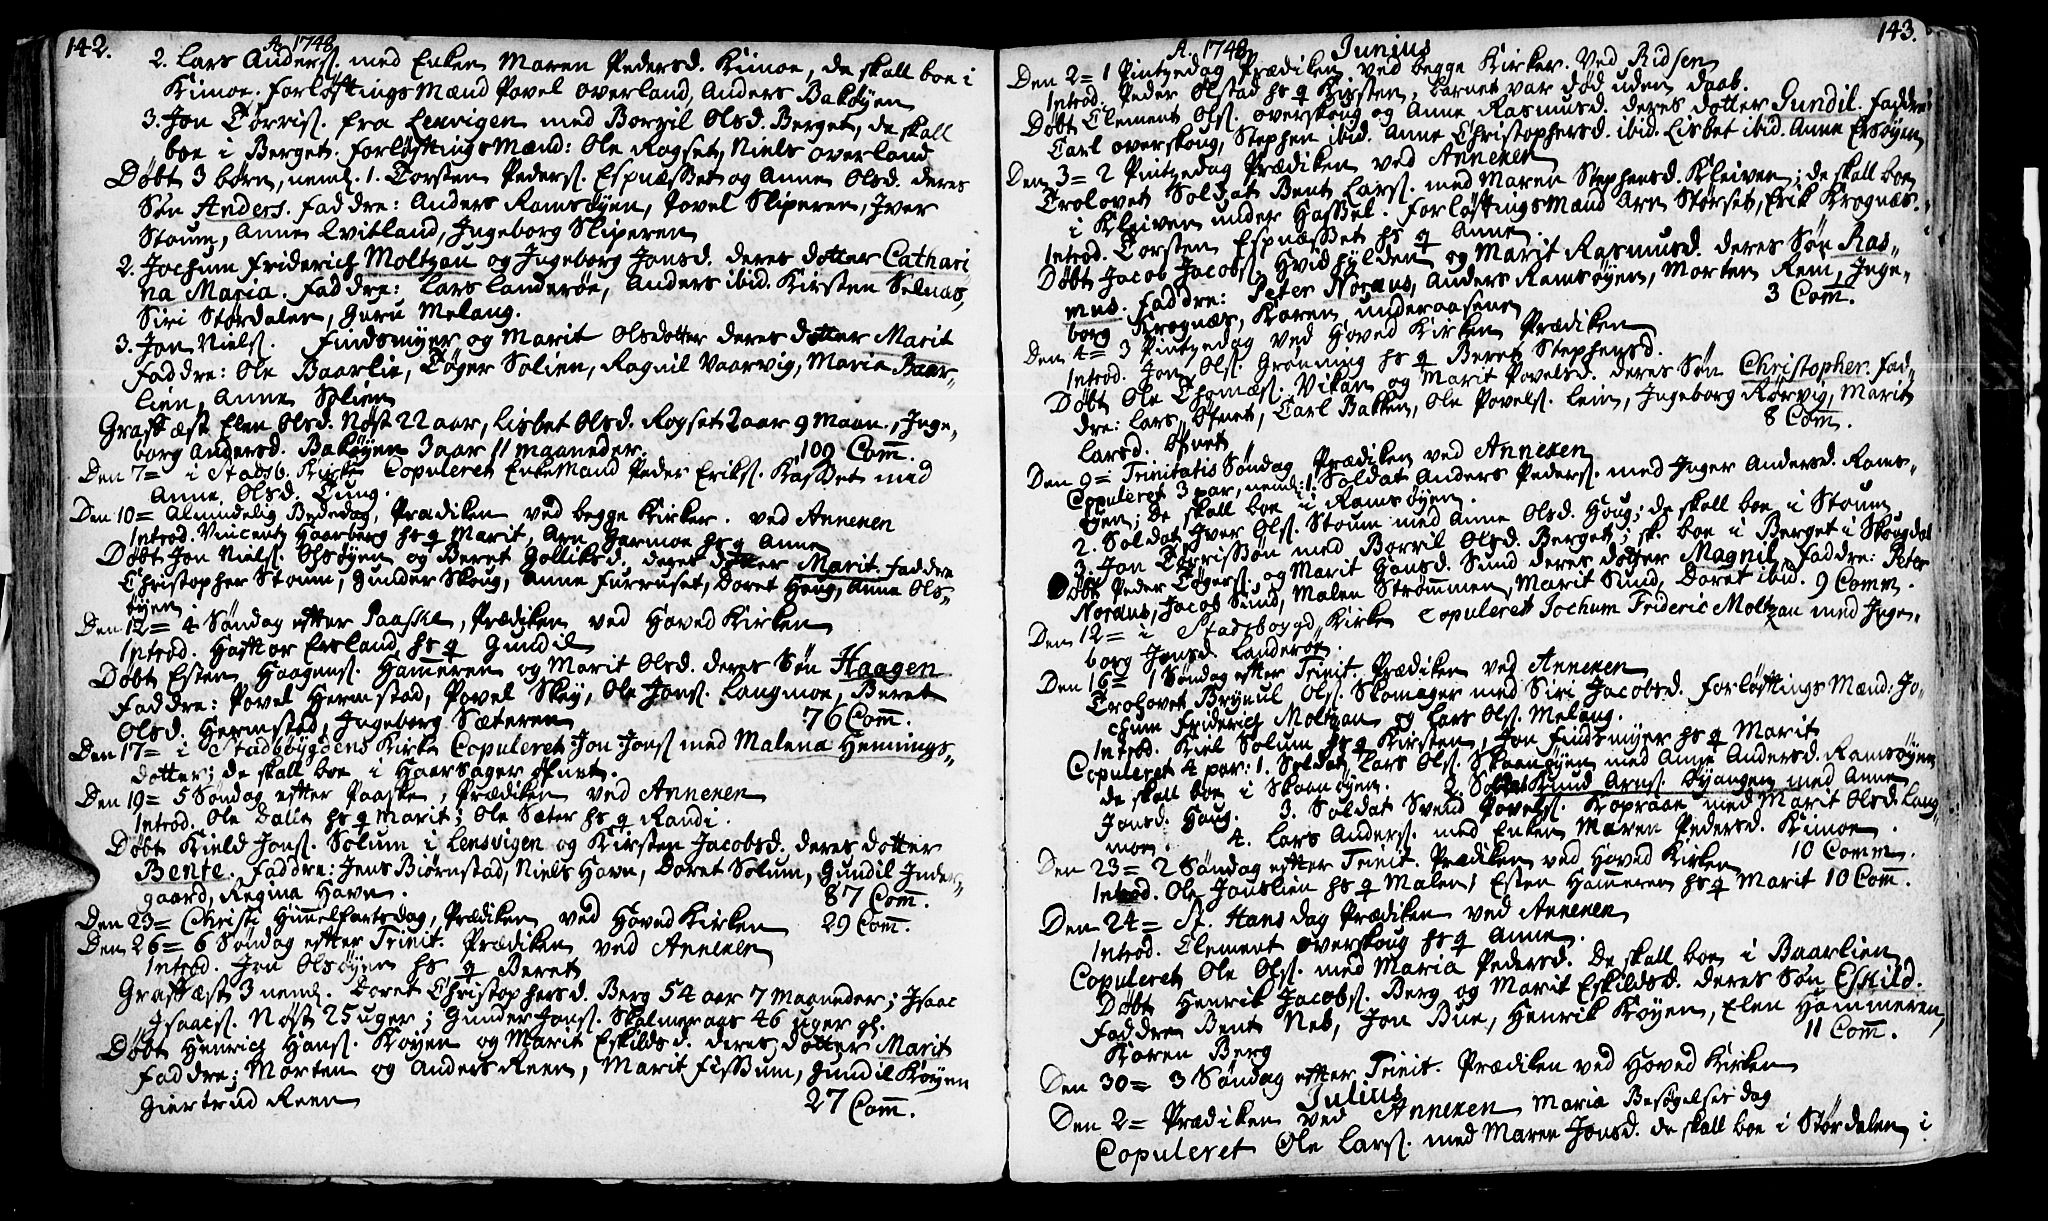 142.
A. 1748.
2. Lars Anders. med Enken Maren Pedersd. Kimoe, de skall boe i
Kimoe. forløftings Mænd Povel overland, Anders Bakøyen
3. Jon Torris. fra Lexvigen med Borgil Olsd. Berget, de skall
boe i Berget. forløftings Mænd: Ole Rogset, Niels overland
Døbt 3 børn, neml. 1. Torsten Peders. Espnæsset og Anne Olsd. deres
Søn Anders. faddre: Anders Ramsøyen, Povel Sliperen, Iver
Stoum, Anne Qvitland, Ingeborg Sliperen
2. Jochum Friderich Moltzau og Ingeborg Jonsd. deres dotter Cathari
na Maria. faddre: Lars Landerøe, Anders ibid. Kirsten Selnæs,
Siri Størdalen, Guru Melang.
3. Jon Niels. Findsmyer og Marit Olsdotter deres dotter Marit
faddre: Ole Baarlie, Tøger Solien, Ragnil Vaarvig, Maria Baar-
lien, Anne Solien
Graffæst Elen Olsd. Nøst 22 aar, Lisbet Olsd. Rogset 2 aar 9 Maan., Inge-
borg Andersd. Bakøyen 3 aar 11 maaneder. 109 Com.
Den 7= i Stadsb. Kirke Copuleret Enkemand Peder Eriks. Kasset med
Anne Olsd. Tung.
Den 10= Almindelig Bededag, Prædiken ved begge Kirker. ved Annexen
Introd. Vincentz Haarberg hs q Marit, Arn Garmoe hs q Anne
Døbt Jon Niels. Olsøyen og Beret Golliksd. deres dotter Marit. faddre
Christopher Stoum, Gunder Skoug, Anne Furruset, Doret Houg, Anne Ols-
øyen
Den 12= 4 Søndag efter Paaske, Prædiken ved Hoved Kirken
Introd. Haftor Ersland hs q Gundil
Døbt Esten Haagens. Hammeren og Marit Olsd. deres Søn Haagen
Faddre: Povel Hermstad, Povel Skey, Ole Jons. Langmoe, Beret
Olsd. Hermstad, Ingeborg Sæteren 76 Com.
Den 17= i Stadsbøygdens Kirke Copuleret Jon Jons. med Malena Hennings-
dotter; de skall boe i Haersager Øfnet.
Den 19= 5 Søndag efter Paaske, Prædiken ved Annexen
Introd. Ole Dalin hs q Marit; Ole Sæter hs q Randi.
Døbt Kield Jons. Solum i Lensvigen og Kirsten Jacobsd. deres dotter
Bente. Faddre: Jens Biørnstad, Niels Hovn, Doret Solum, Gundil Inder-
gaard, Regina Havn. 87 Com.
Den 23= Christi Himmelfartsdag, Prædiken ved Hoved Kirken 29 Com.
Den 26= 6 Søndag efter Trinit. Prædiken ved Annexen
Introd. Jon Olsøyen hs q Beret
Graffæst 3 neml. Doret Christophersd. Berg 54 aar 7 maaneder; Isaac
Isaacs. Nøst 25 uger; Gunder Jons. Skalmeraas 46 uger gl.
Døbt Henrich Hans. Køyen og Marit Eskildsd. deres dotter Marit
faddre; Morten og Anders Reen, Marit Fissum, Gundil Køyen
Giertrud Reen 27 Com.
143.
A. 1748. Junius
Den 2= 1 Pintzedag Prædiken ved begge Kirker. Ved Ridsen
Introd. Peder Olstad hs q Kirsten, barnet var død uden daab.
Døbt Clement Ols. overskoug og Anne Rasmusd. deres dotter Gundil. faddre
Carl overskoug, Stephen ibid. Anne Christophersd. ibid. Lisbet ibid. Anne Ersøyen
Den 3= 2 Pintzedag Prædiken ved Annexen
Trolovet Soldat Bent Lars. med Maren Stephensd. Kleiven; de skall boe
i Kleiven under Hassel. forløftings Mænd Arn Størset, Erik Krognæs.
Introd. Torsten Espnæsset hs q Anne.
Døbt Jacob Jacobs. Hvidhylden og Marit Rasmusd. deres Søn Ras-
mus. faddre: Peter Nordus, Anders Ramsøyen, Morten Rem, Inge-
borg Krognæs, Karen underaasene 3 Com.
Den 4= 3 Pintzedag ved Hoved Kirken Prædiken
Introd. Jon Ols. Grønning hs q Beret Stephensd.
Døbt Ole Thomæs. Vikan og Marit Povelsd. deres Søn Christopher. Fad-
dre: Lars Øfnet, Carl Bakken, Ole Povels. lein, Ingeborg Rørvig, Marit
Larsd. Øfnet 8 Com.
Den 9= Trinitatis Søndag Prædiken ved Annexen
Copuleret 3 par, neml: 1. Soldat Anders Peders. med Inger Andersd. Rams-
øyen; De skall boe i Ramsøyen.
2. Soldat Iver Ols. Stoum med Anne Olsd. Houg; de skall boe i Stoum
3. Jon Torrissøn med Borril Olsd. Berget; sk. boe i Berget i Skougdal
Døbt Peder Tøgers. og Marit Hansd. Sund deres dotter Magnil, faddre: Peter
Nordus, Jacob Sund, Malen Strømmen, Marit Sund, Doret ibid. 9 Comm.
Den 12= i Stadsboygd Kirke Copuleret Jochum Frideric Moltzau med Inge-
borg Jonsd. Landerøe.
Den 16= 1 Søndag efter Trinit. Prædiken ved Annexen
Trolovet Brynul Ols. Skomager med Siri Jacobsd. forløftings Mænd: Jo-
chum Friderich Moltzau og Lars Ols. Melang.
Introd. Kiel Solum hs q Kirsten, Jon Findsmyer hs q Marit
Copuleret 4 par: 1. Soldat Lars Ols. Skaanøyen med Anne Andersd. Ramsøyen
de skall boe i Skaanøyen. 2. Soldat Knud Arns. Øyangen med Anne
Jonsd. Houg. 3. Soldat Svend Povels. Kopraae med Marit Olsd. Lang-
moe. 4. Lars Anders. med Enken Maren Pedersd. Kimoe.
10 Comm.
Den 23= 2 Søndag efter Trinit. Prædiken ved Hoved Kirken
Introd. Ole Jonslien hs q Malen; Esten Hammeren hs q Marit 10 Com.
Den 24= St. Hans dag Prædiken ved Annexen
Introd. Clement overskoug hs q Anne.
Copuleret Ole Ols. med Maria Pedersd. De skall boe i Baarlien
Døbt Henrik Jacobs. Berg og Marit Eskildsd. deres Søn Eskild.
Faddre Bent Neb, Jon Bue, Henrik Køyen, Elen Hammeren,
Karen Berg 11 Com.
Den 30= 3 Søndag efter Trinit. Prædiken ved Hoved Kirken
Julius
Den 2= Prædiken ved Annexen Maria Besøgelses dag
Copuleret Ole Lars. med Maren Jonsd. de skall boe i Størdalen i